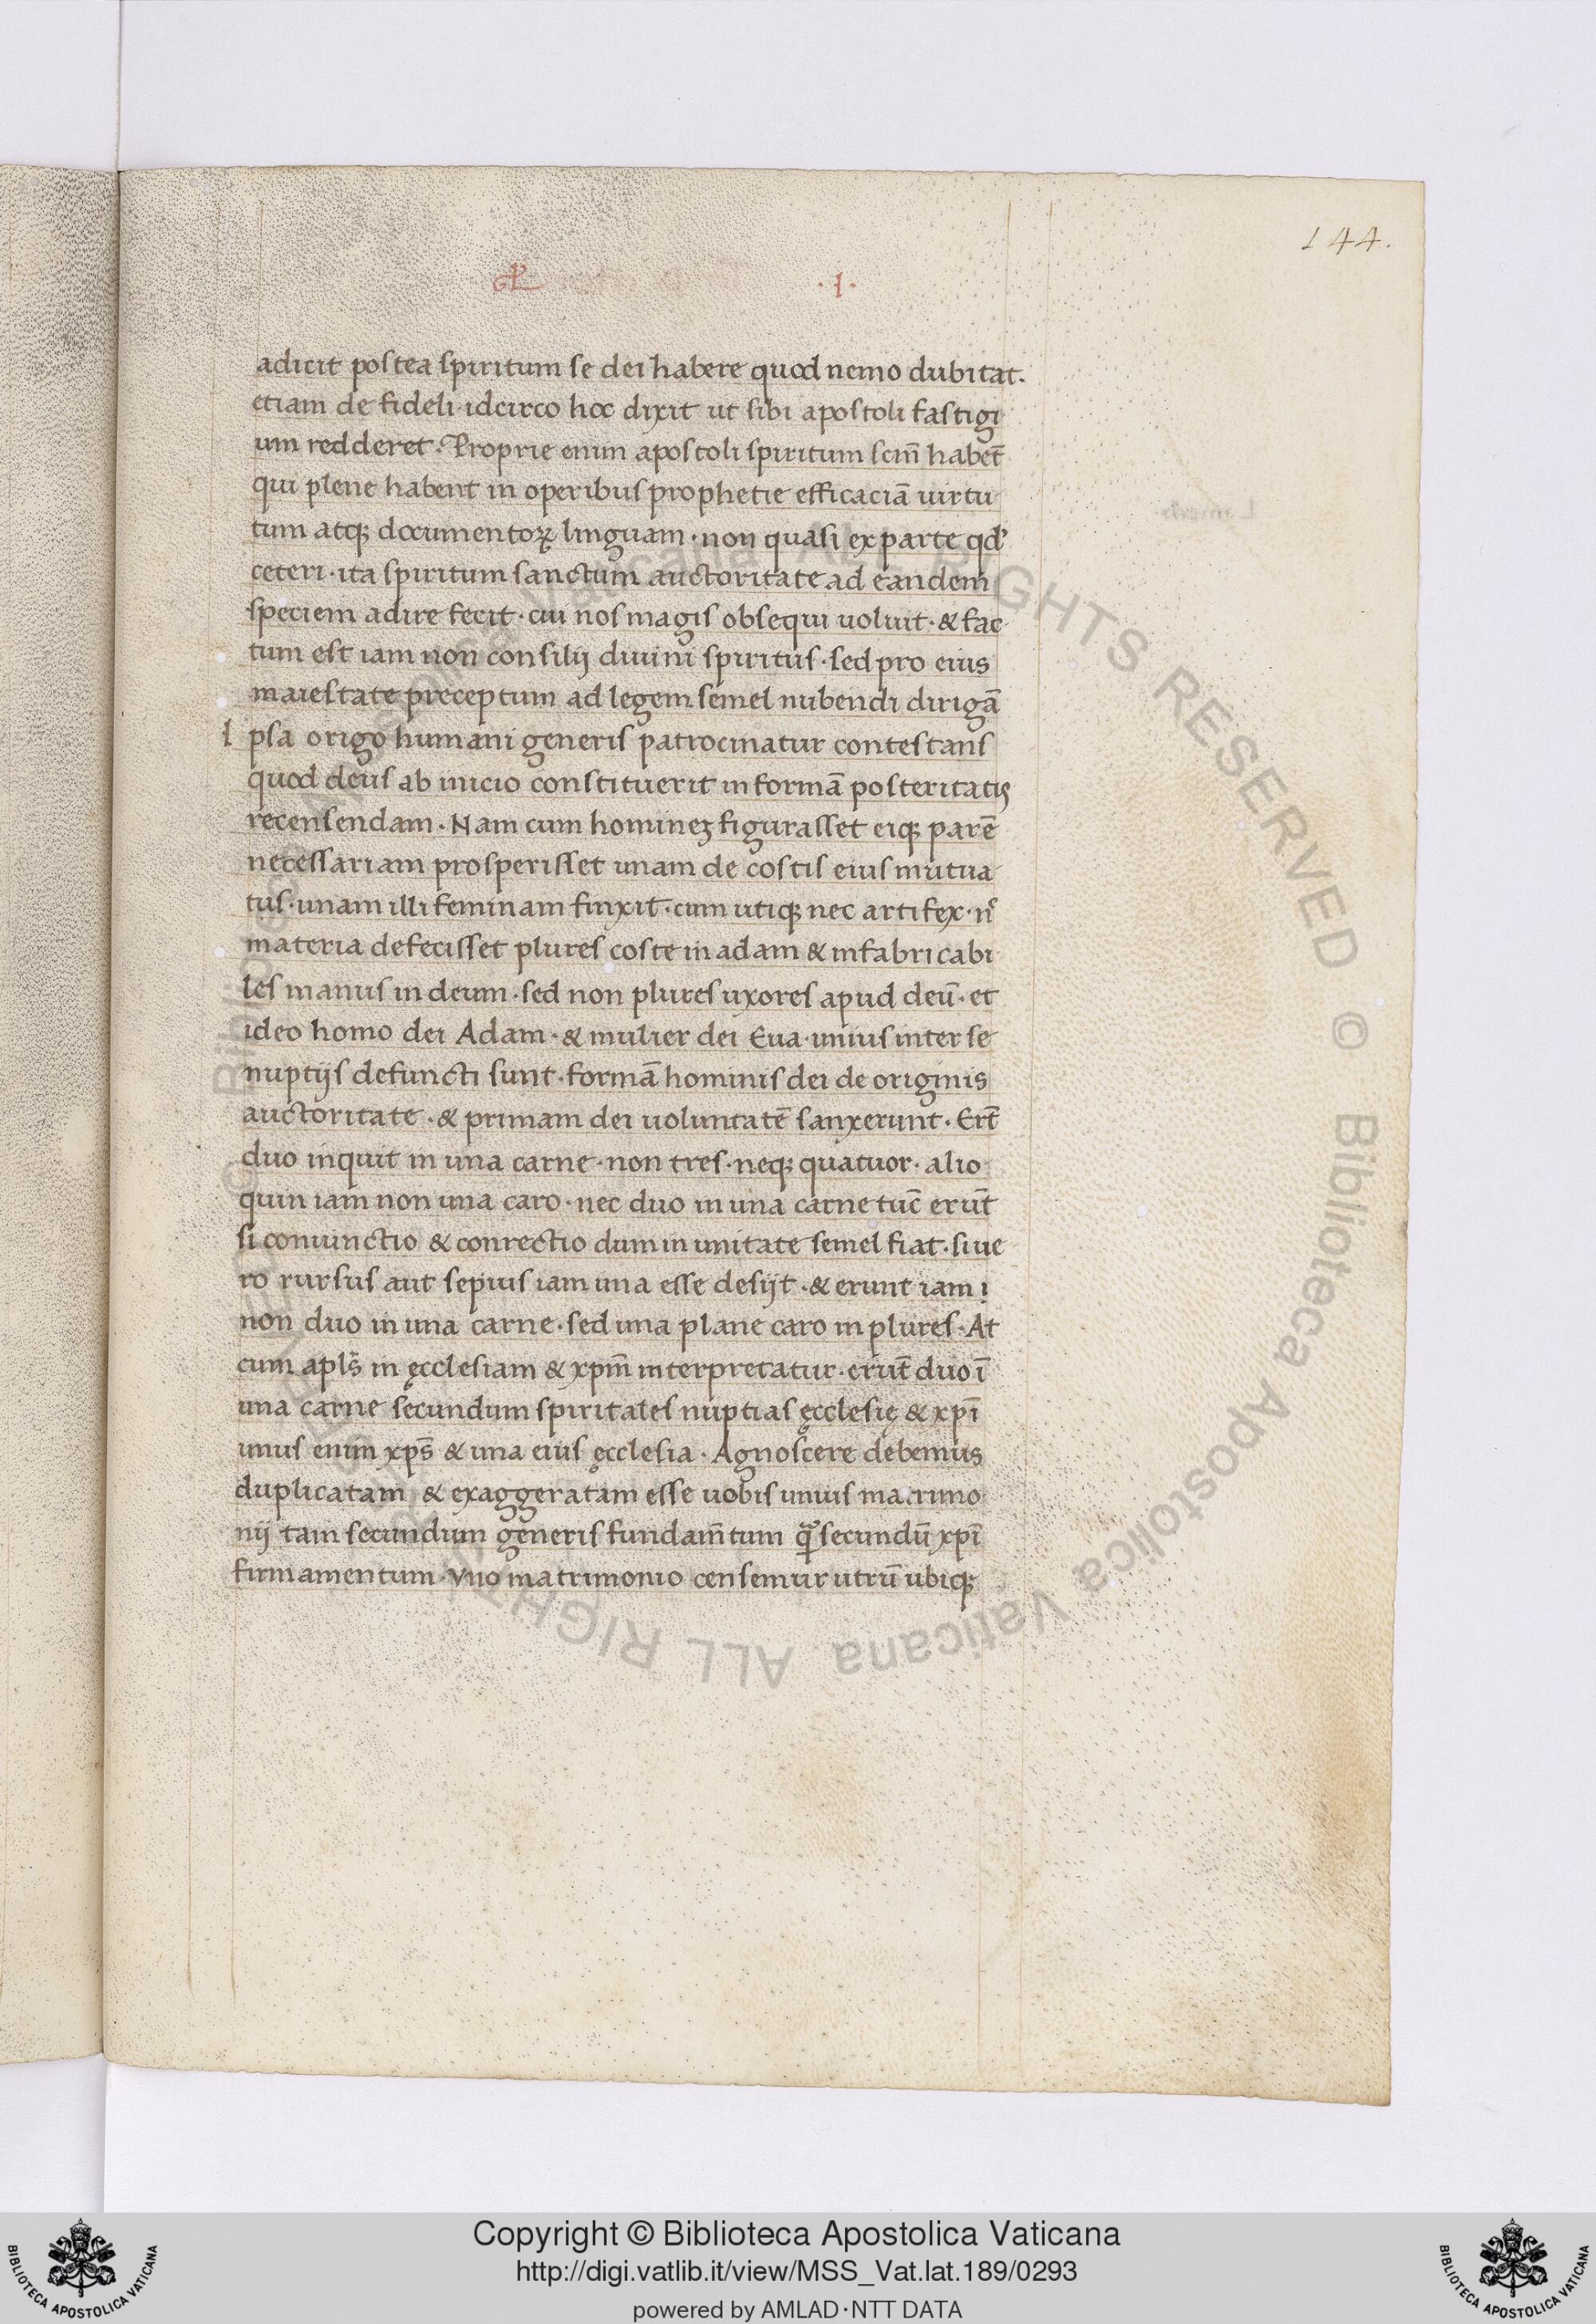 144.
·I·
adicit postea spiritum se dei habere quod nemo dubitat.
etiam de fideli·idcirco hoc dixit ut sibi apostoli fastigi
um redderet·Proprie enim apostoli spiritum scm̄ habet̄
qui plene habent in operibus prophetie efficaciā uirtu
tum atq; documentoꝝ linguam·non quasi ex parte qd'
ceteri·ita spiritum sanctum auctoritate ad eandem
speciem adire fecit·cui nos magis obsequi uoluit·& fac
tum est iam non consilij diuini spiritus·sed pro eius
maiestate preceptum ad legem semel nubendi dirigā
I psa origo humani generis patrocinatur contestans
quod deus ab inicio constituerit in formā posteritatis
recensendam·Nam cum hominez figurasset eiq; parē
necessariam prosperisset unam de costis eius mutua
tus·unam illi feminam finxit·cum utiq; nec artifex·n̄
materia defecisset plures coste in adam & infabricabi
les manus in deum·sed non plures uxores apud deū·et
ideo homo dei Adam·& mulier dei Eua·unius inter se
nuptijs defuncti sunt·formā hominis dei de originis
auctoritate·& primam dei uoluntatē sanxerunt·Ert̄
duo inquit in una carne·non tres·neq; quatuor·alio
quin iam non una caro·nec duo in una carne tūc erūt
si coniunctio & conrectio dum in unitate semel fiat·si ue
ro rursus aut sepius iam una esse desijt·& erunt iam
non duo in una carne·sed una plane caro in plures·At
cum apls̄ in ęcclesiam & xpm̄ interpretatur·erūt duo ī
una carne secundum spiritales nuptias ęcclesię & xpī
unus enim xps̄ & una eius ęcclesia·Agnoscere debemus
duplicatam & exaggeratam esse uobis unius matrimo
nij tam secundum generis fundam̄tum qͣ̄ secundū xpī
firmamentum·Vno matrimonio censemur utrū ubiq;
Copyright © Biblioteca Apostolica Vaticana
http://digi.vatlib.it/view/MSS_Vat.lat.189/0293
powered by AMLAD·NTT DATA
BIBLIOTECA APOSTOLICA VATICANA
BIBLIOTECA APOSTOLICA VATICANA
© Biblioteca Apostolica Vaticana ALL RIGHTS RESERVED